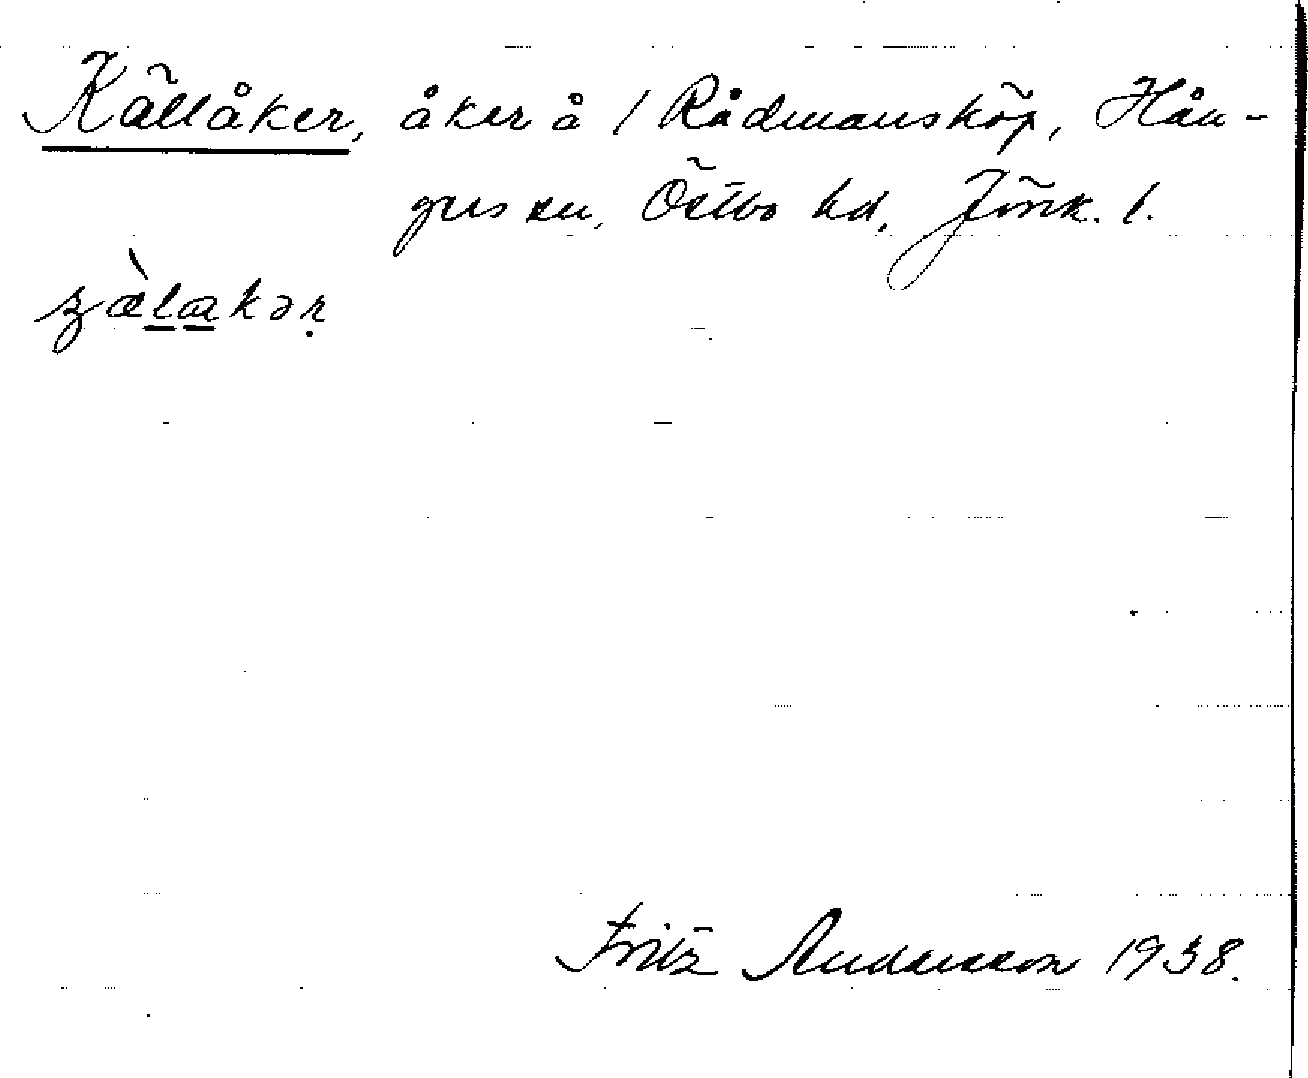 Källåker, åker å / Rådmansköp, Hån-
ger sn, Östbo hd, Jönk. l.
Fritz Andersson 1938.